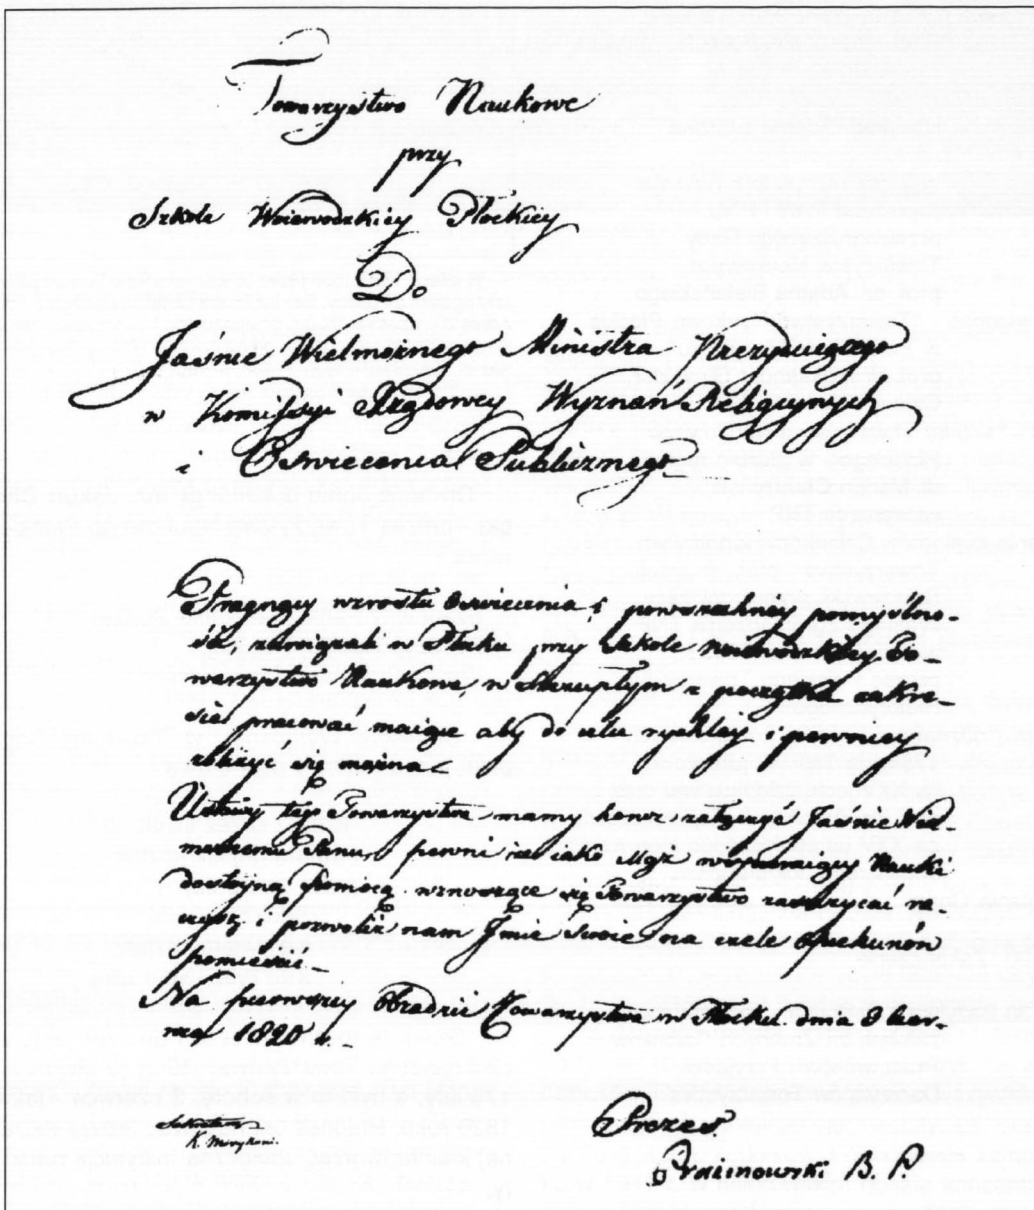 Towarzystwo Naukowe
przy
Szkole Woiewodzkiey Płockiey
Do
Jaśnie Wielmożnego Ministra Prezyduiącego
w Kommissyi Rządowey Wyznań Religiynych
i Oświecenia Publicznego
Pragnący wzrostu Oświecenia i powszechney pomyślno-
ści, zawiązali w Płocku przy Szkole Woiewodzkiey To-
warzystwo Naukowe, w szczupłym z początku zakre-
sie pracować maiące aby do celu rychley i pewniey
zbliżyć się można
Ustawy tego Towarzystwa mamy honor załączyć Jaśnie Wiel-
możnemu Panu, pewni że iako Mąż wspieraiący Nauki
dostoyną pomocą wznoszące się Towarzystwo zaszczycać ra-
czysz, i pozwolisz nam Jmie Swoie na czele Opiekunów
pomieścić
Na pierwszey Obradzie Towarzystwa w Płocku dnia 3 Czer-
wca 1820 r.
Sekretarz
Prezes
K. Morykoni
Prażmowski B. P